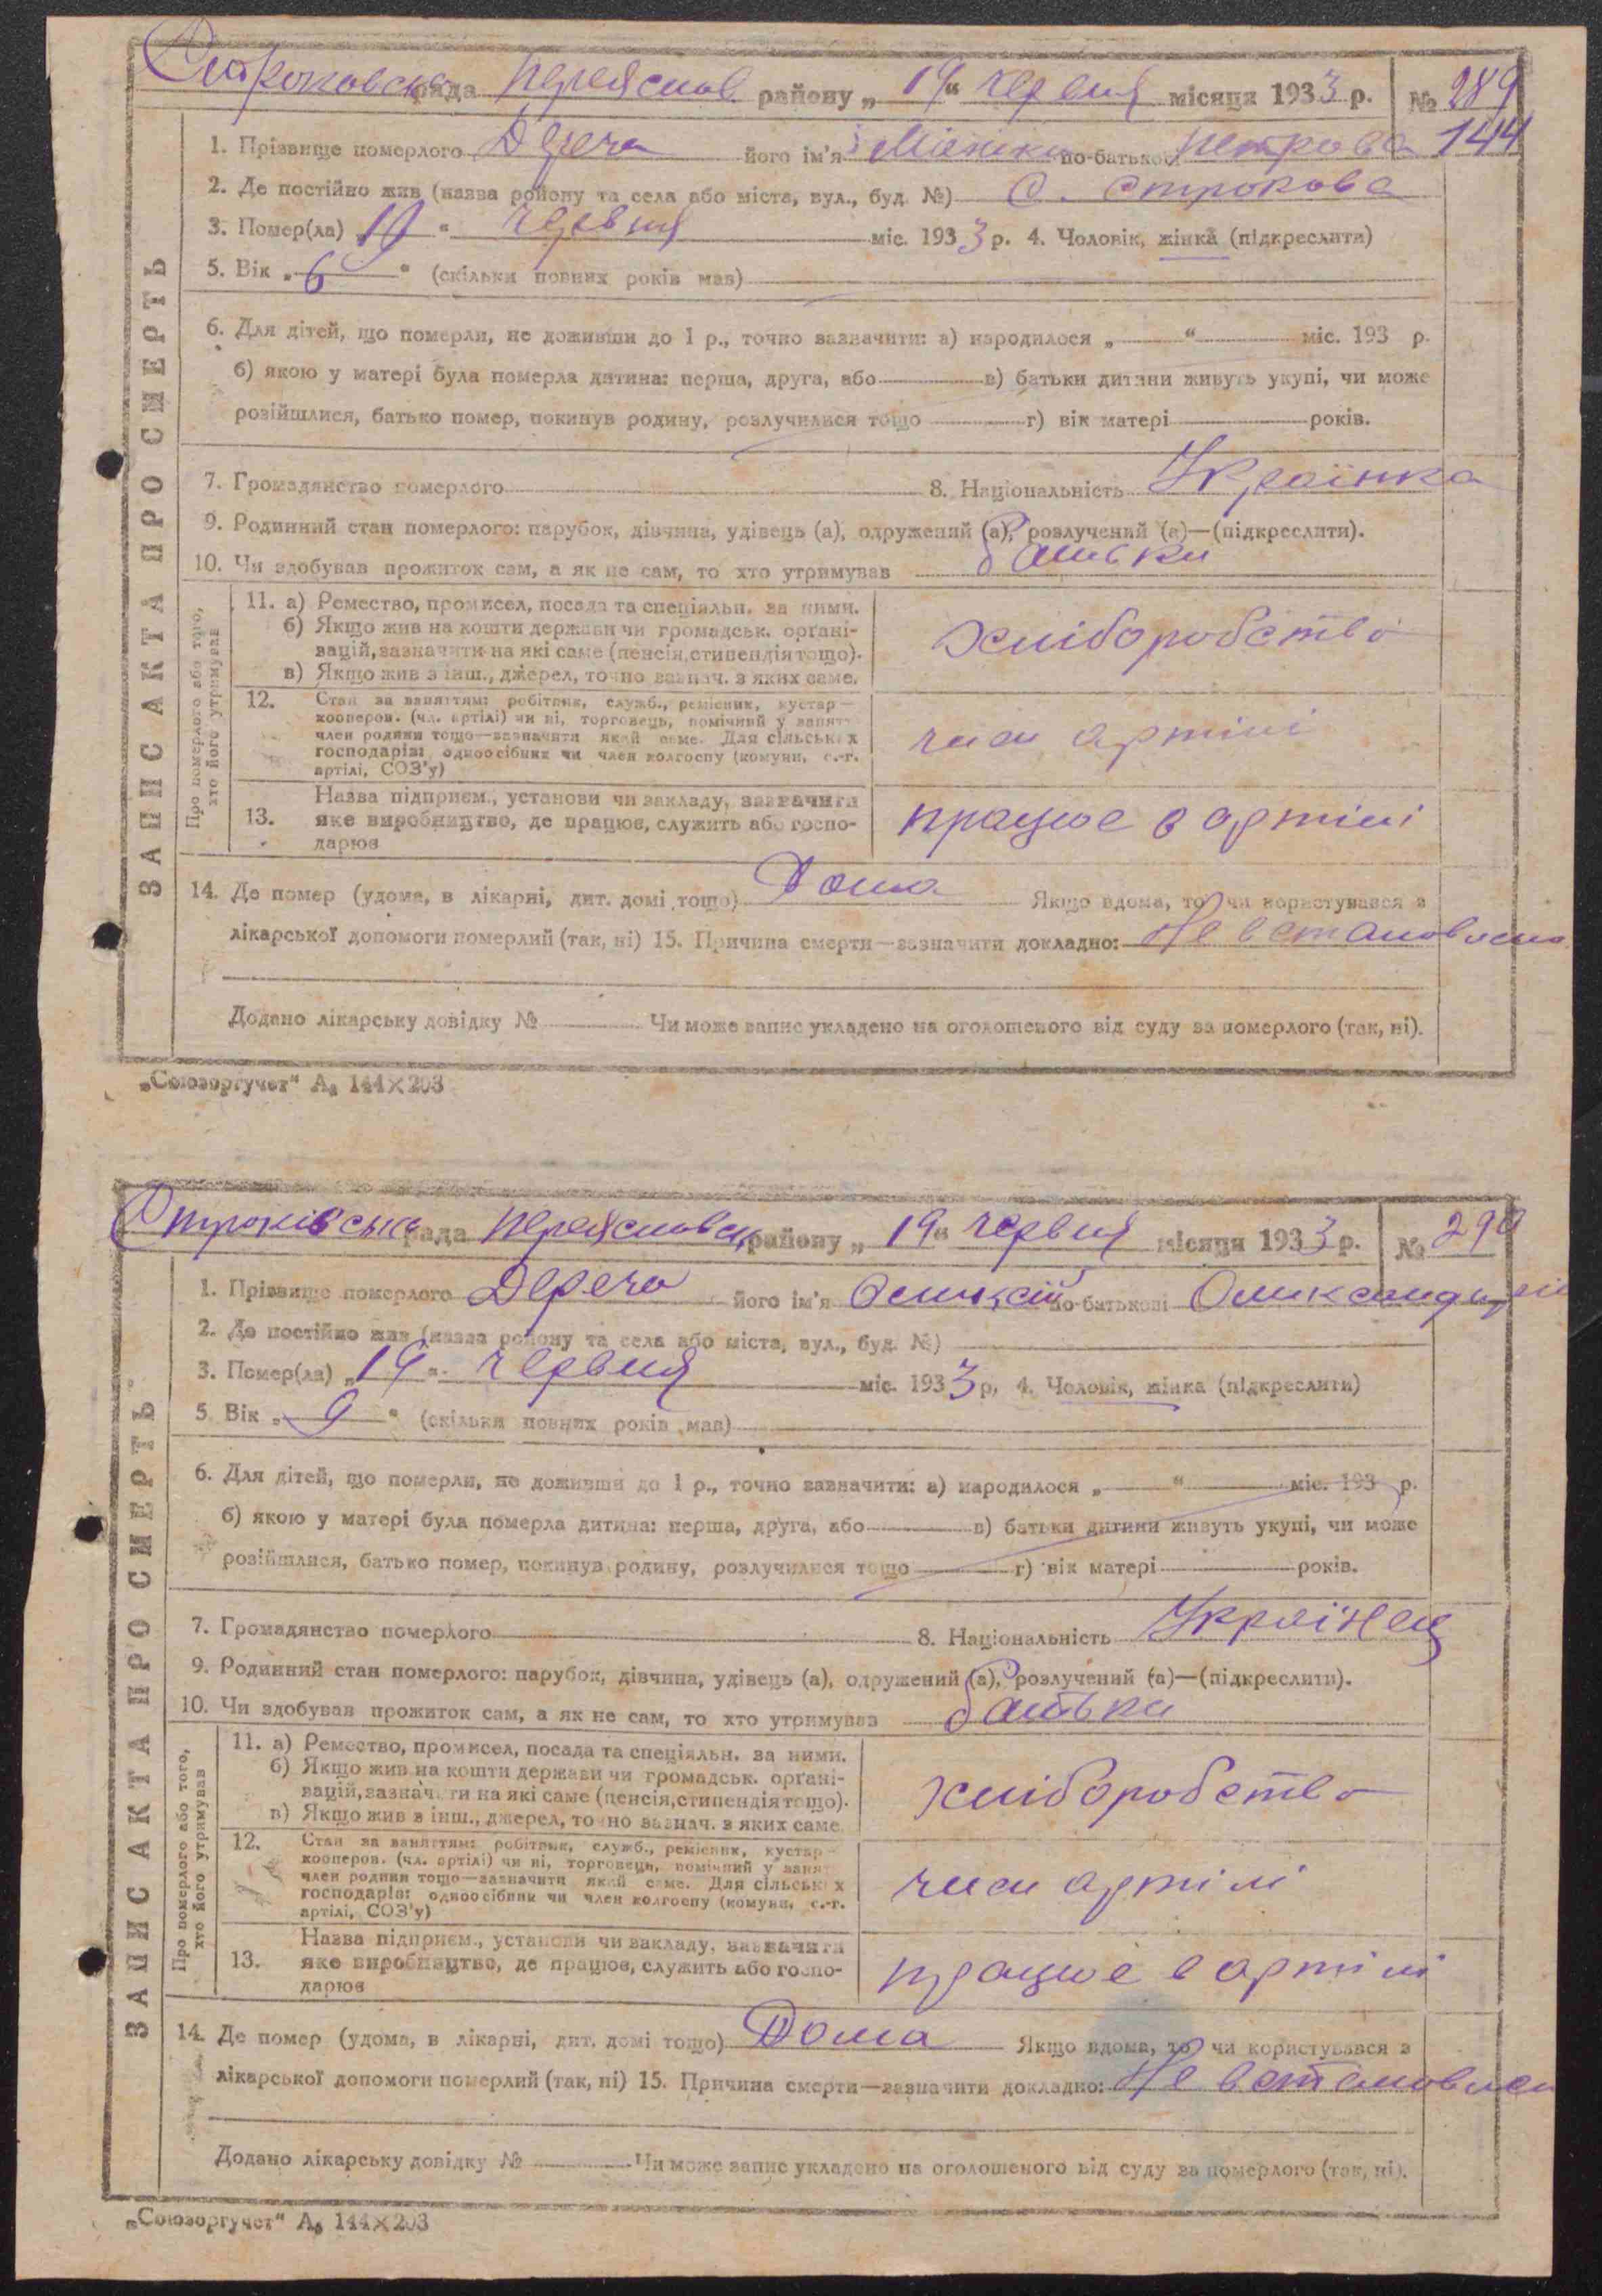 Строковська рада Переяслов. району „19“ червня місяця 1933 р. № 289
144
1. Прізвище померлого Дереча його ім'я по-батькові Петрова
2. Де постійно жив (назва району та села або міста, вул., буд. №) С. Строкова
3. Помер(ла) „19“ червня міс. 1933 р. 4. Чоловік, жінка (підкреслити)
5. Вік „6“ (скільки повних років мав)
6. Для дітей, що померли, не доживши до 1 р., точно зазначити: а) народилося „ “ міс. 193 р.
б) якою у матері була померла дитина: перша, друга, або в) батьки дитини живуть укупі, чи може
розійшлися, батько помер, покинув родину, розлучилися тощо г) вік матері років.
7. Громадянство померлого 8. Національність Українка
9. Родинний стан померлого: парубок, дівчина, удівець (а), одружений (а), розлучений (а)—(підкреслити).
10. Чи здобував прожиток сам, а як не сам, то хто утримував батьки
ЗАПИС АКТА ПРО СМЕРТЬ
Про померлого або того,
хто його утримував
11. а) Ремество, промисел, посада та спеціяльн. за ними.
б) Якщо жив на кошти держави чи громадськ. орґані-
зацій, зазначити на які саме (пенсія, стипендія тощо).
в) Якщо жив з інш., джерел, точно зазнач. з яких саме.
хліборобство
12. Стан за заняттям: робітник, служб., ремісник, кустар—
кооперов. (чл. артілі) чи ні, торговець, помічний у занят
член родини тощо—зазначити який саме. Для сільських
господарів: одноосібник чи член колгоспу (комуни, с.-г.
артілі, СОЗ'у)
член артілі
13. Назва підприєм., установи чи закладу, зазначити
яке виробництво, де працює, служить або госпо-
дарює
працює в артілі
14. Де помер (удома, в лікарні, дит. домі тощо) Дома Якщо вдома, то чи користувався з
лікарської допомоги померлий (так, ні) 15. Причина смерти—зазначити докладно: Не встановлено
Додано лікарську довідку № Чи може запис укладено на оголошеного від суду за померлого (так, ні).
„Союзоргучет“ А₅ 144×203
Строківська рада Переясловськ району „19“ червня місяця 1933 р. № 290
1. Прізвище померлого Дереча його ім'я Олексій по-батькові Олександрів
2. Де постійно жив (назва району та села або міста, вул., буд. №)
3. Помер(ла) „19“ червня міс. 1933 р, 4. Чоловік, жінка (підкреслити)
5. Вік „9“ (скільки повних років мав)
6. Для дітей, що померли, не доживши до 1 р., точно зазначити: а) народилося „ “ міс. 193 р.
б) якою у матері була померла дитина: перша, друга, або в) батьки дитини живуть укупі, чи може
розійшлися, батько помер, покинув родину, розлучилися тощо г) вік матері років.
7. Громадянство померлого 8. Національність Українец
9. Родинний стан померлого: парубок, дівчина, удівець (а), одружений (а), розлучений (а)—(підкреслити).
10. Чи здобував прожиток сам, а як не сам, то хто утримував батьки
ЗАПИС АКТА ПРО СМЕРТЬ
Про померлого або того,
хто його утримував
11. а) Ремество, промисел, посада та спеціяльн. за ними.
б) Якщо жив на кошти держави чи громадськ. орґані-
зацій, зазначити на які саме (пенсія, стипендія тощо).
в) Якщо жив з інш., джерел, точно зазнач. з яких саме.
хліборобство
12. Стан за заняттям: робітник, служб., ремісник, кустар—
кооперов. (чл. артілі) чи ні, торговець, помічний у заня
член родини тощо—зазначити який саме. Для сільських
господарів: одноосібник чи член колгоспу (комуни, с.-г.
артілі, СОЗ'у)
член артілі
13. Назва підприєм., установи чи закладу, зазначити
яке виробництво, де працює, служить або госпо-
дарює
працює в артілі
14. Де помер (удома, в лікарні, дит. домі тощо) Дома Якщо вдома, то чи користувався з
лікарської допомоги померлий (так, ні) 15. Причина смерти—зазначити докладно: Не встановлен
Додано лікарську довідку № Чи може запис укладено на оголошеного від суду за померлого (так, ні).
„Союзоргучет“ А₅ 144×203